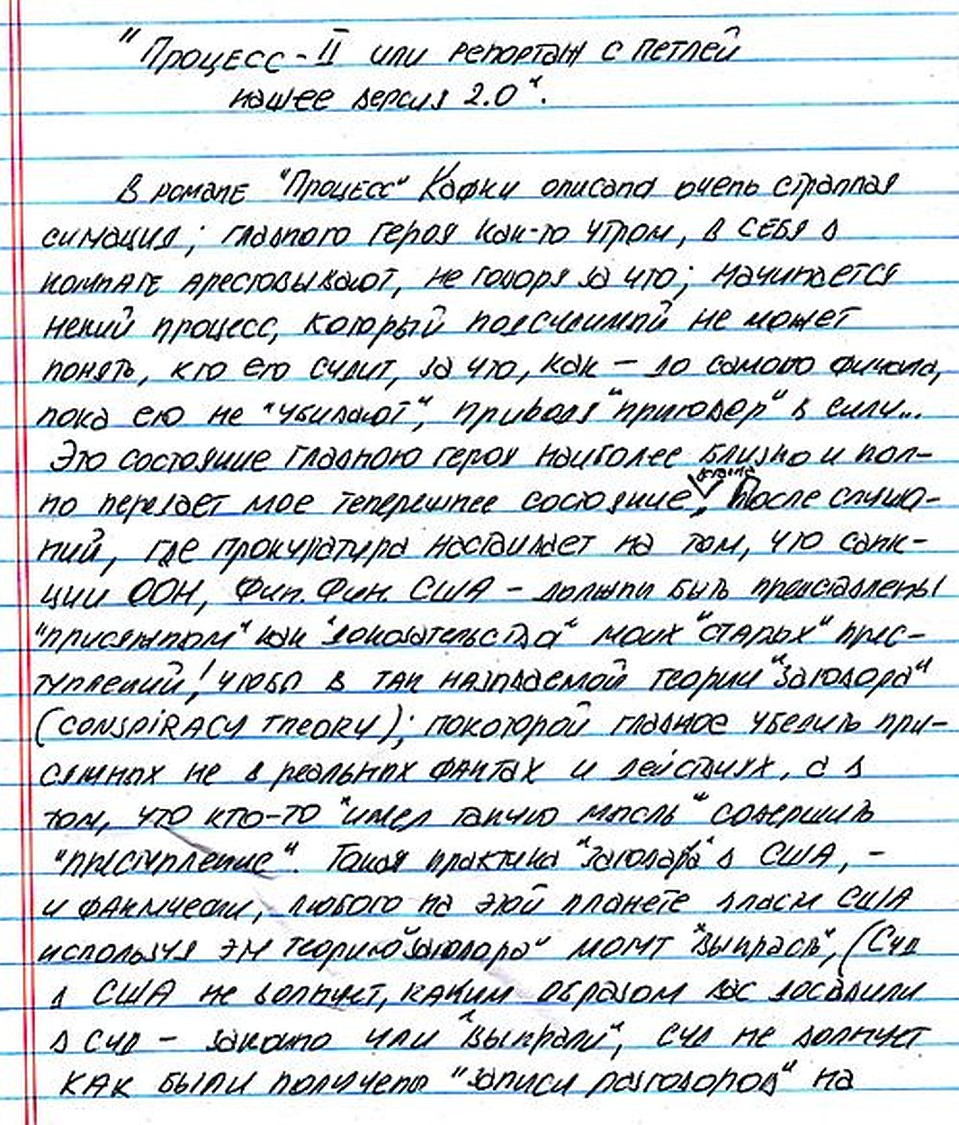 "Процесс-II или репортаж с петлей
на шее версия 2.0".
В романе "Процесс" Кафки описана очень странная
ситуация; главного героя как-то утром, в себя в
комнате арестовывают, не говоря за что; начинается
некий процесс, который подсудимый не может
понять, кто его судит, за что, как – до самого финала,
пока его не "убивают", приводя "приговор" в силу...
Это состояние главного героя наиболее близко и пол-
но передает мое теперешнее состояние, после слуша-
ний, где прокуратура настаивает на том, что санк-
ции ООН, Фин. Фин. США – должны быть представлены
"присяжным" как "доказательства" моих "старых" прес-
туплений! чтобы в так называемой теории "заговора"
(CONSPIRACY THEORY); по которой главное убедить при-
сяжных не в реальных фактах и действиях, а в
том, что кто-то "имел такую мысль" совершить
"преступление". Такая практика "заговора" в США, –
и фактически, любого на этой планете власти США
используя эту теорию "заговора" могут "выкрасть", (Суд
в США не волнует, каким образом вас доставили
в суд – законно или "выкрали", суд не волнует
как были получены "записи разговоров" на